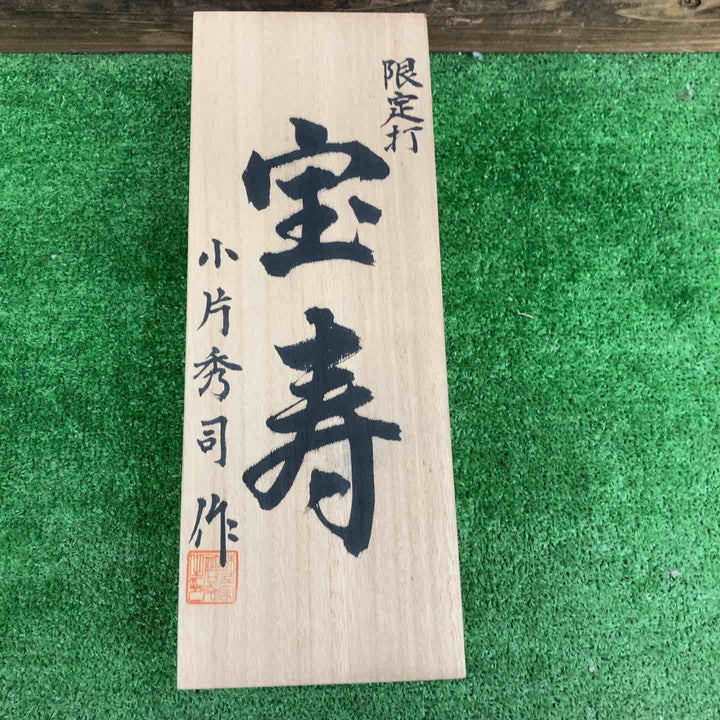 限定打
宝寿
小片秀司作